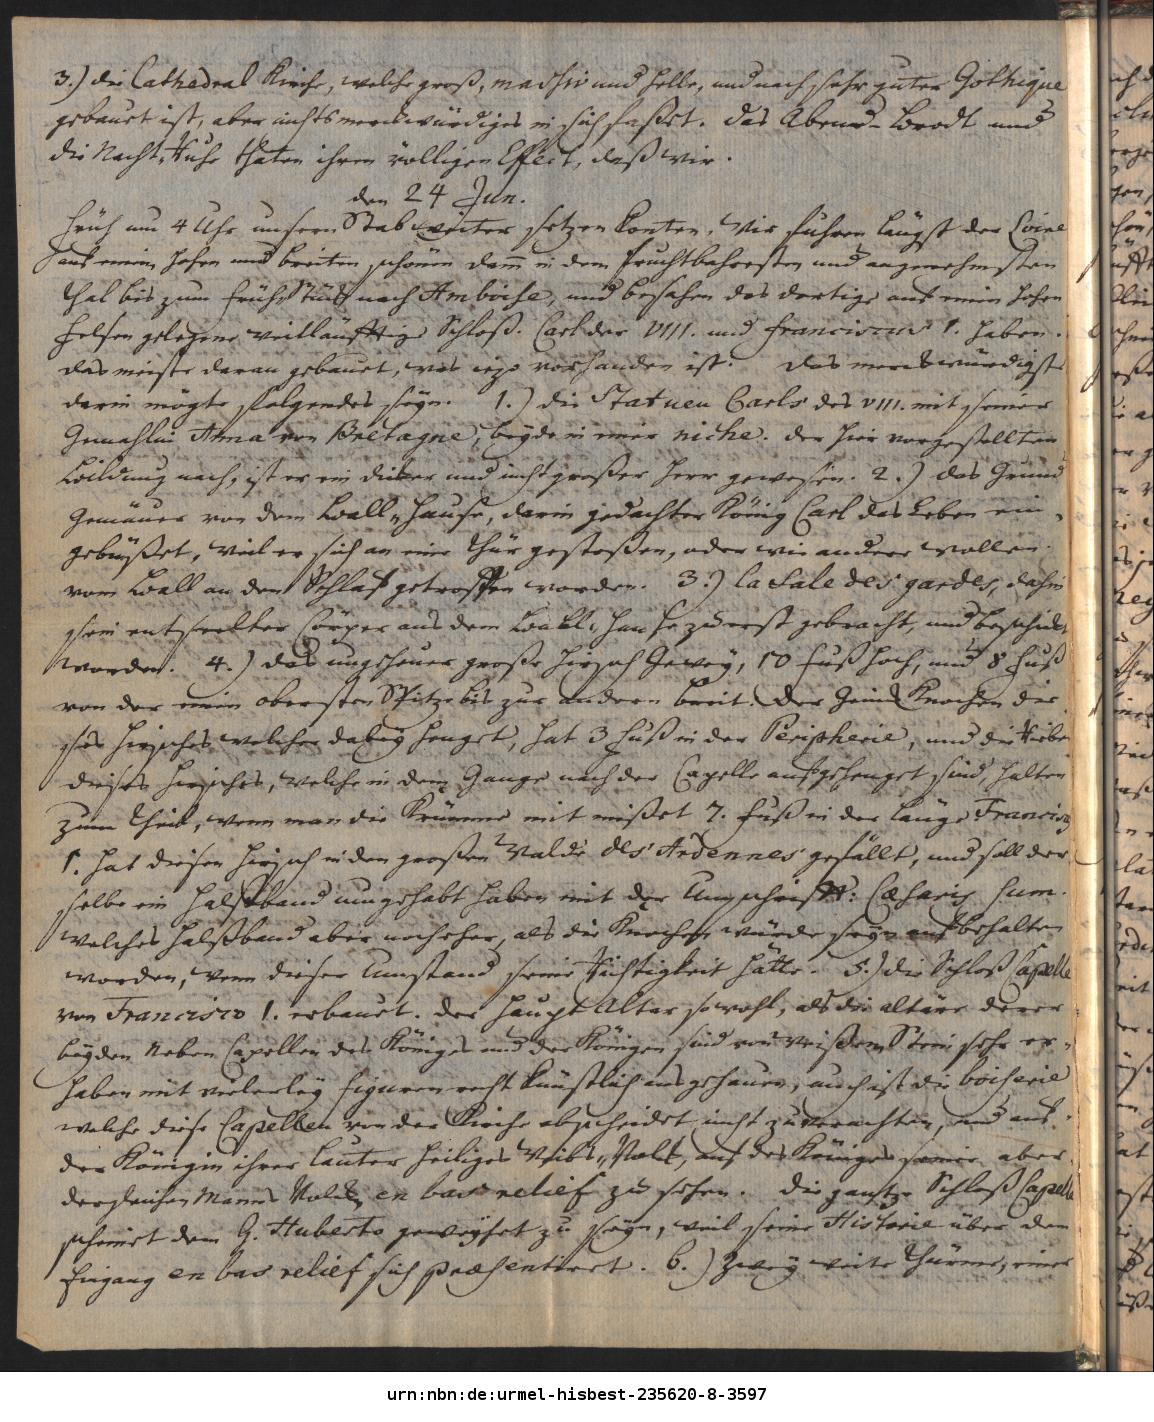 3.) die Cathedral Kirche, welche groß, massiv und helle, und nach sehr guter Gothique
gebauet ist, aber nichts merckwürdiges in sich faßet. Das Abend-Brodt und
die Nacht-Ruhe thaten ihren völligen Effect, daß wir.
den 24 Jun.
früh um 4 Uhr unsern Stab weiter setzen konten. Wir fuhren längst der Loire
auf einem hohen und breiten schönen Dam in dem fruchtbahresten und angenehmsten
Thal bis zum frühStück nach Amboise, und besahen das dortige auf einem hohen
Felsen gelegene weitläufftige Schloß. Carl der VIII. und Franciscus 1. haben
das meiste daran gebauet, was iezo vorhanden ist. Das merckwürdigste
darin mögte folgendes seyn. 1.) die Statuen Carls des VIII. mit seiner
Gemahlin Anna von Bretagne, beyde in einer niche. Der hier vorgestellten
Bildung nach, ist er ein dicker und nicht großer Herr gewesen. 2.) das Grund
Gemäuer von dem Ball-Hause, darin gedachter König Carl das Leben ein-
gebüßet, weil er sich an eine Thür gestoßen, oder wie andere wollen
vom Ball an den Schlaf getroffen worden. 3.) la Sale des gardes, dahin
sein entseelter Cörper aus dem Ball-Hause zuerst gebracht, und
worden. 4.) das ungeheuer große Hirsch Gewey, 10 Fuß hoch, und 8 Fuß
von der einen obersten Spitze bis zur andern breit. Der Knochen die-
ses Hirsches welcher dabey henget, hat 3 Fuß in der Peripherie, und die Riebe
dieses Hirsches, welche in dem Gange nach der Capelle aufgehenget sind, halten
zum Theil, wenn man die Krümme mit mißet 7. Fuß in der Länge. Franciscus
1. hat diesen Hirsch in den großen Walde des Ardennes gefället, und soll der-
selbe ein Halßband umgehabt haben mit der Umschrifft: Caesaris sum.
welches Halßband aber noch eher, als die Knochen würde seyn aufbehalten
worden, wenn dieser Umstand seine Richtigkeit hätte. 5.) die Schloß Capelle
von Francisco 1. erbauet. Der Haupt Altar sowohl, als die altäre derer
beyden Neben Capellen des Königes und der Königin sind von weißem Stein sehr er-
haben mit vielerley Figuren recht künstlich ausgehauen, auch ist die boiserie
welche diese Capellen von der Kirche abscheidet nicht zu verachten, und auf
der Königin ihrer lauter heiliges Weibs-Volk, auf des Königes seiner aber
dergleichen Manns Volck en bas relief zu sehen. Die gantze Schloß Capelle
scheinet dem H. Huberto geweyhet zu seyn, weil seine Historie über den
Eingang en bas relief sich praesentiret. 6.) Zwey weite Thürme, einer
urn:nbn:de:urmel-hisbest-235620-8-3597